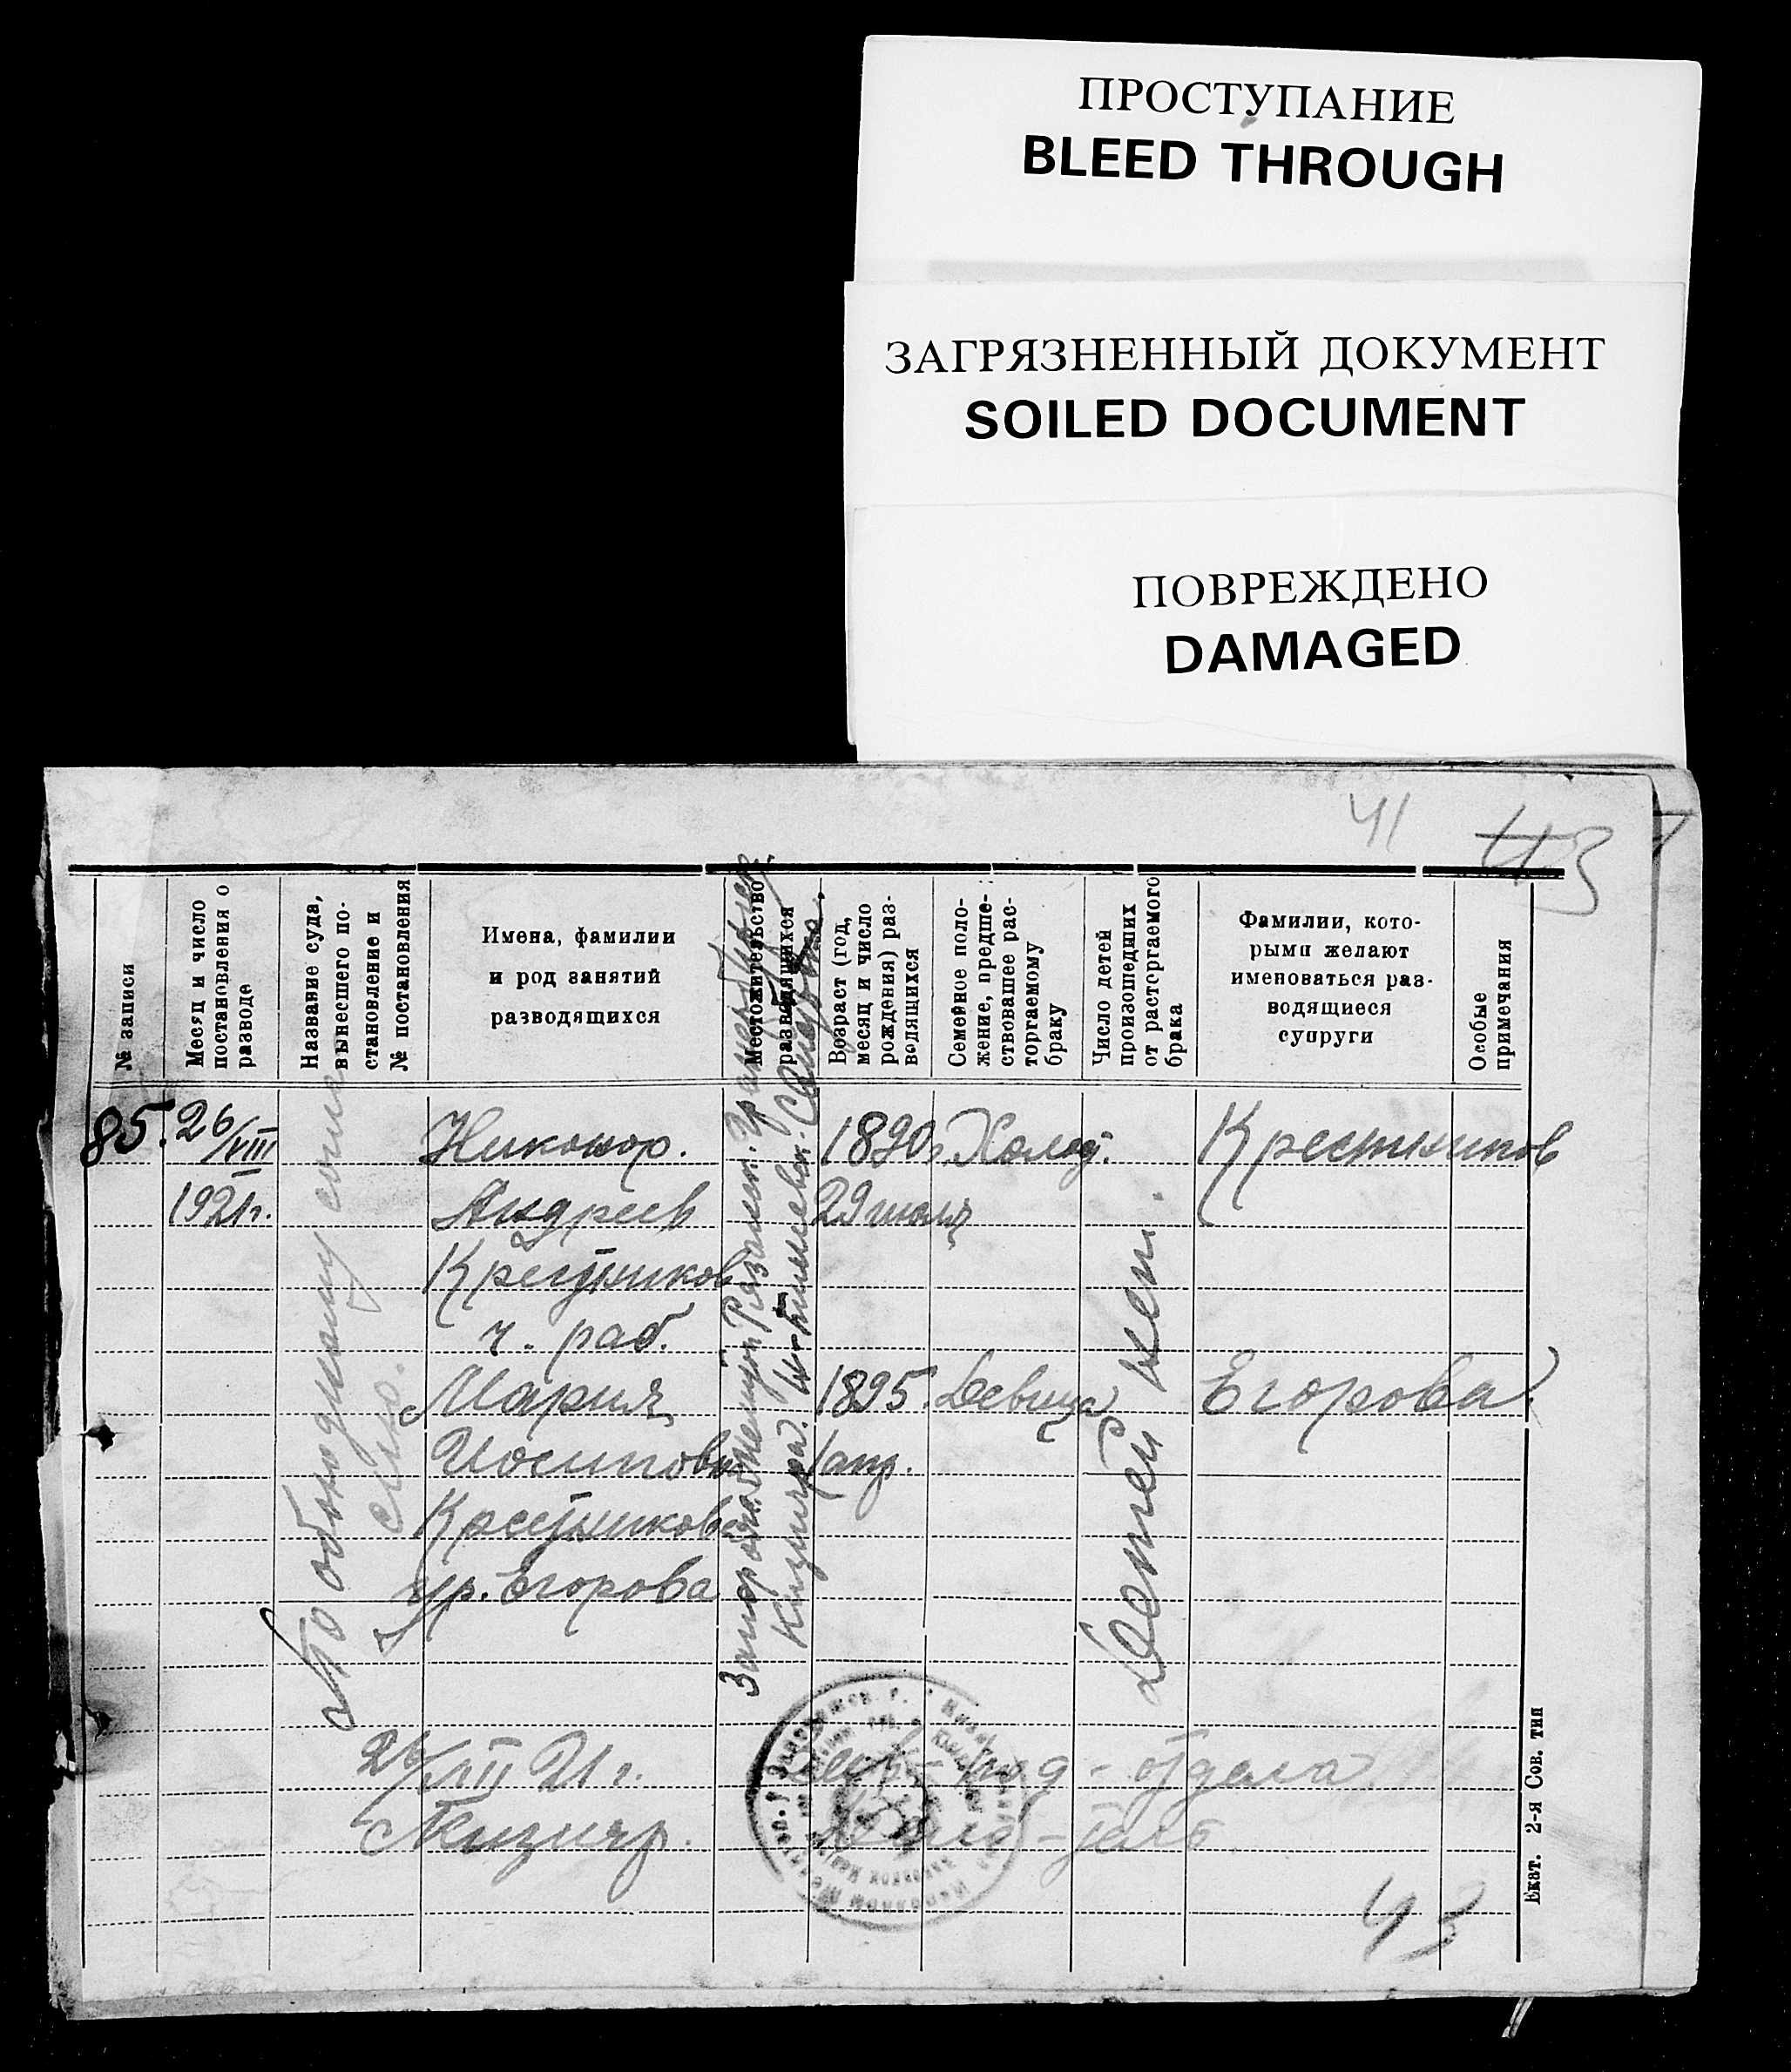 ПРОСТУПАНИЕ
BLEED THROUGH
ЗАГРЯЗНЕННЫЙ ДОКУМЕНТ
SOILED DOCUMENT
ПОВРЕЖДЕНО
DAMAGED
41
43
№ записи
Месяц и число
постановления о
разводе
Название суда,
вынесшего по-
становление и
№ постановления
Имена, фамилии
и род занятий
разводящихся
Местожительство
разводящихся
Возраст (год,
месяц и число
рождения) раз-
водящихся
Семейное поло-
жение, предше-
ствовавшее рас-
торгаемому
браку
Число детей
произошедших
от расторгаемого
брака
Фамилии, кото-
рыми желают
именоваться раз-
водящиеся
супруги
Особые
примечания
85. 26/VIII
1921г.
По обоюдному согла
сию.
Никонор.
Андреев
Крестников
ч. раб.
Мария
Иосиповн
Крестникова
ур. Егорова
1890г.
29 июля
1895
1 апр.
Холост.
Девица
Детей нет.
Крестников
Егорова.
26/VIII 21 г.
отдела
43
Екат. 2-я Сов. тип